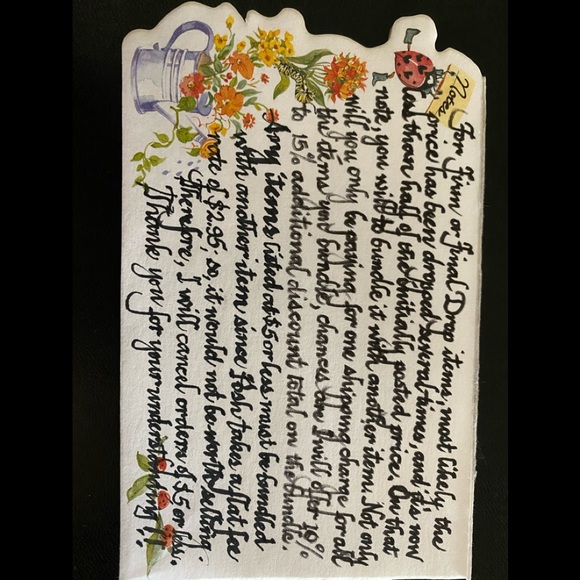 Notes
For Firm or Final Drop items, most likely the
price has been dropped several times, and it's now
less than half of the initially posted price. On that
note, you will to bundle it with another item. Not only
will you only be paying for one shipping charge for all
the items you bundle, chances are I will offer 10%
to 15% additional discount total on the bundle.
Any items listed at $5 or less must be bundled
with another item since Posh takes a flat fee
rate of $2.95, so, it would not be worth selling.
Therefore, I will cancel orders of $5 or less.
Thank you for your understanding!!